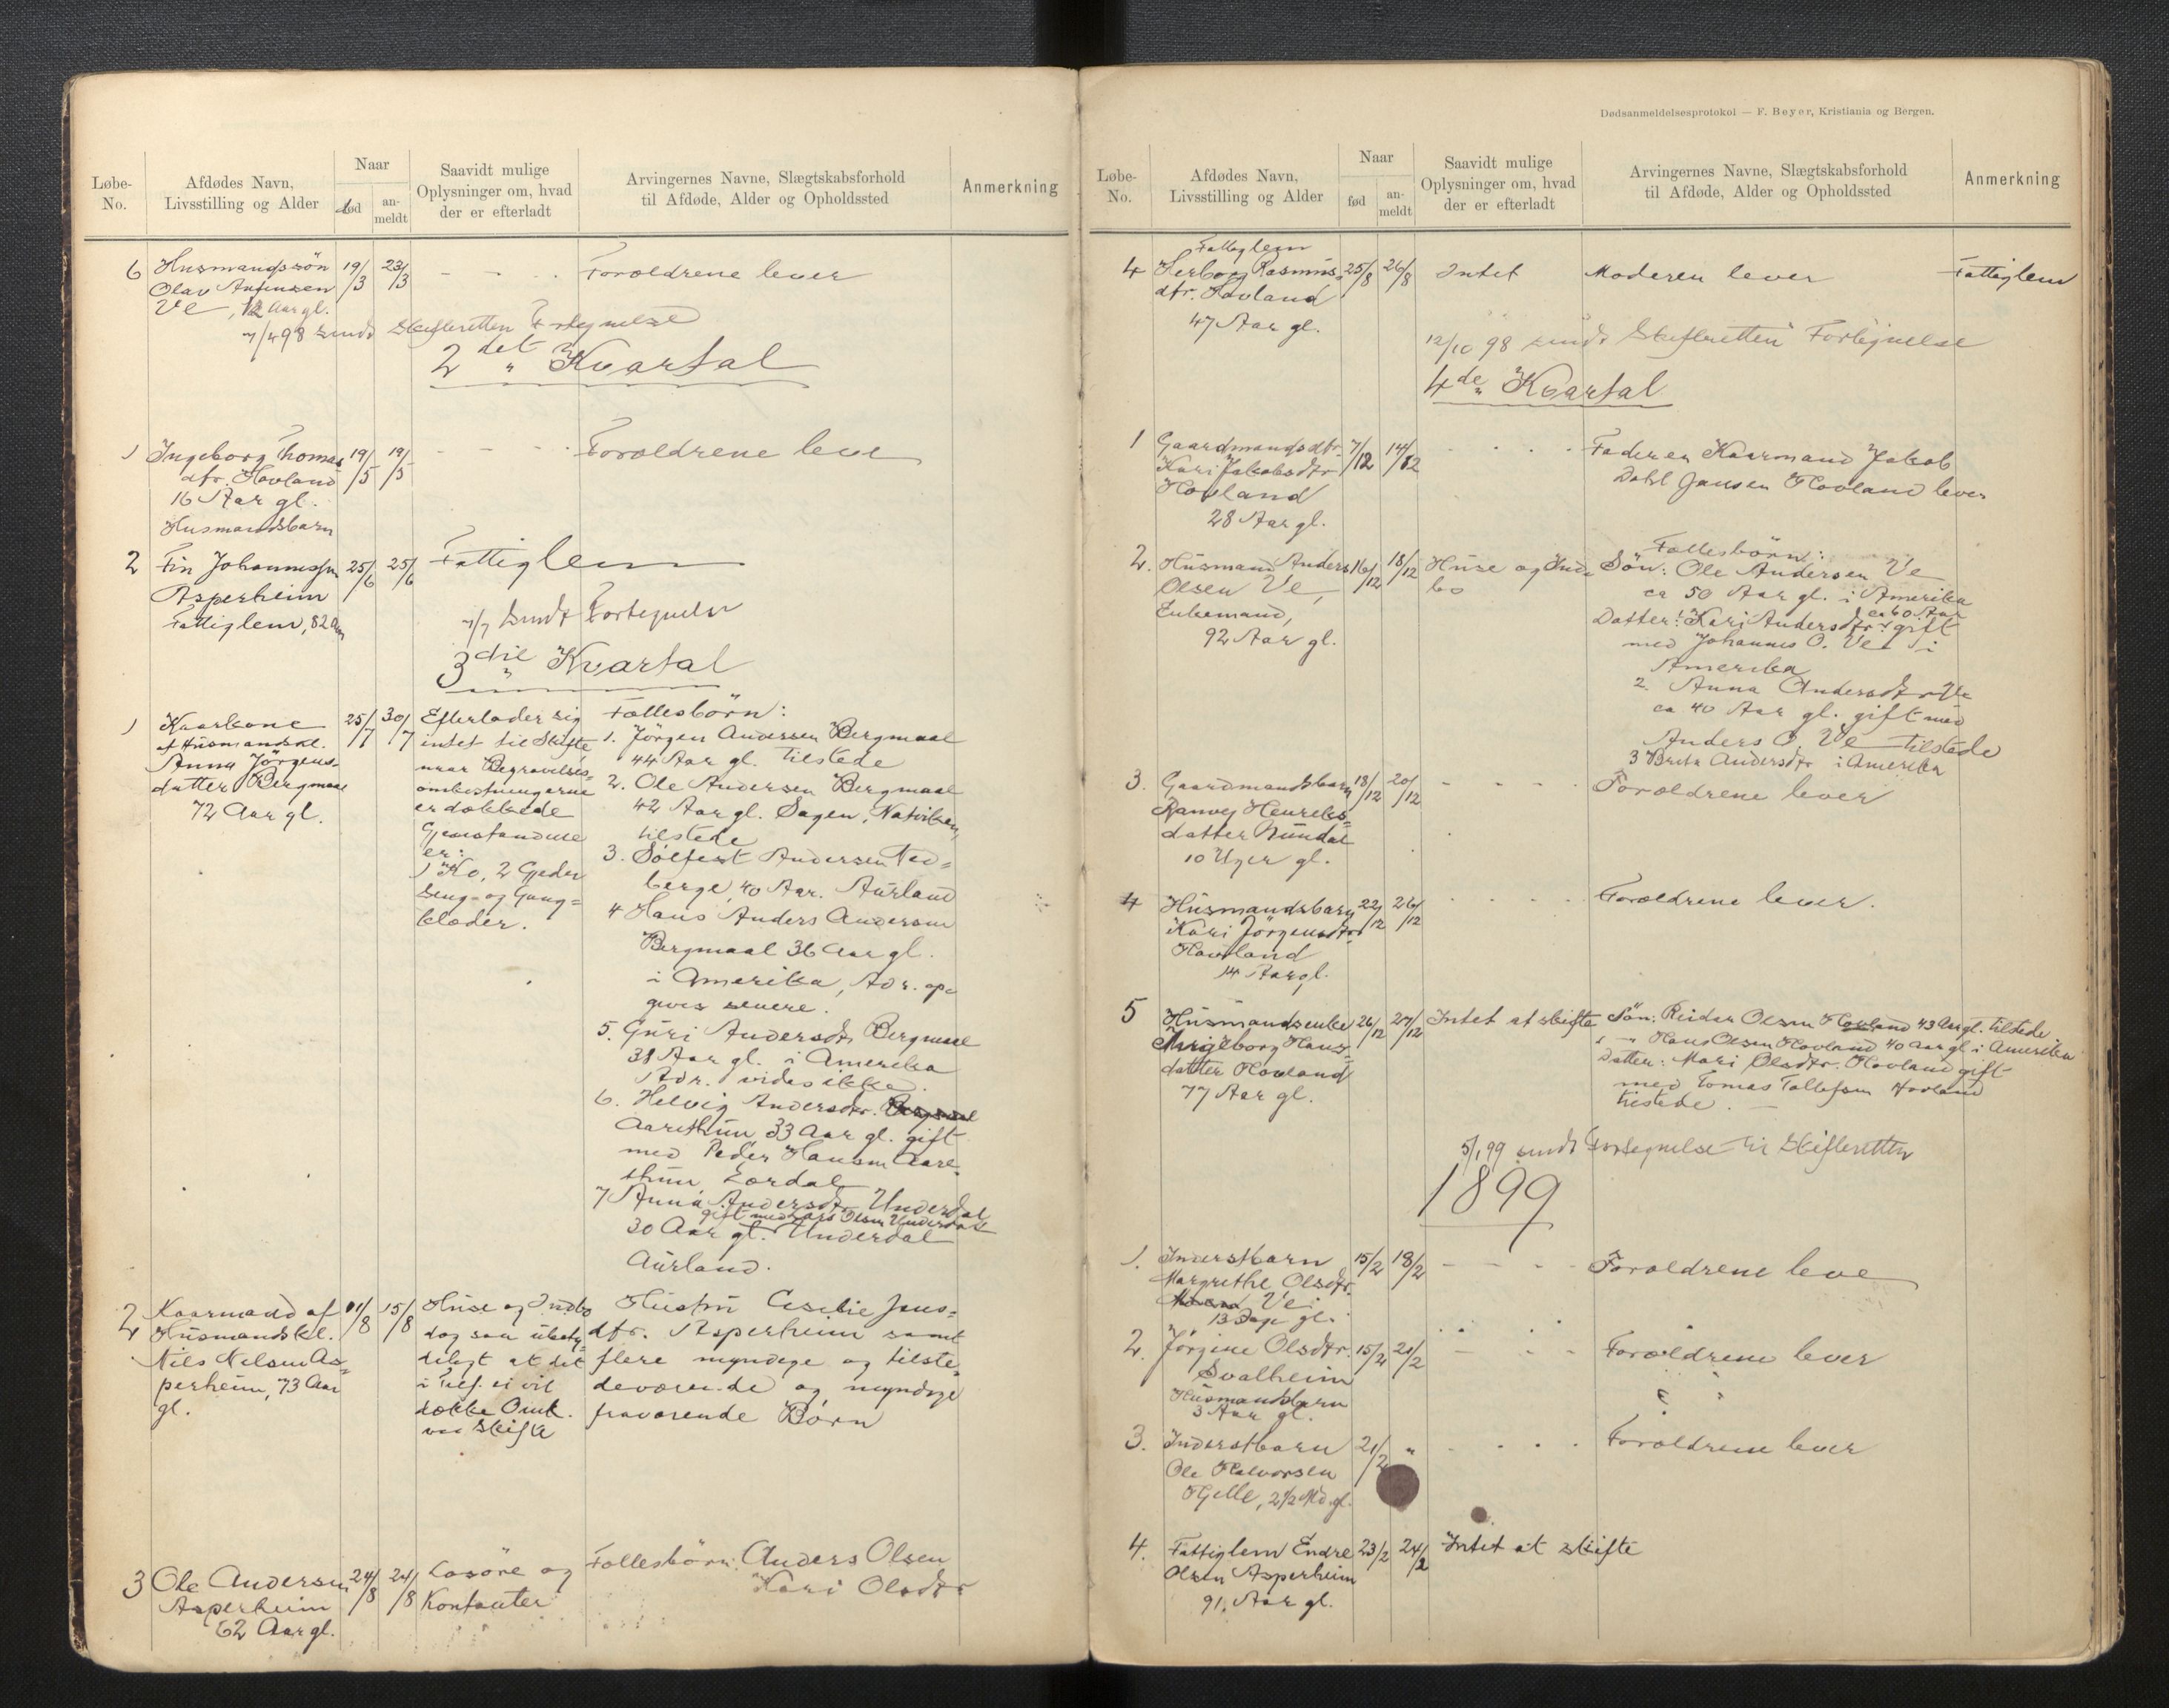 Løbe-
No.
Afdødes Navn,
Livsstilling og Alder
Naar
død
an-
meldt
Saavidt mulige
Oplysninger om, hvad
der er efterladt
Arvingernes Navne, Slægtskabsforhold
til Afdøde, Alder og Opholdssted
Anmerkning
6 Husmandssön 19/3 23/3 - - - Forældrene lever
Olav
Ve, 12 Aar gl.
7/4 98 sendt Skifteretten Fortegnelse
2det Kvartal
1 Ingeborg Thomas 19/5 19/5 - - - Forældrene leve
dtr. Hovland
16 Aar gl.
Husmandsbarn
2 Fin Johannessen 25/6 25/6 Fattiglem
Asperheim
Fattiglem, 82 Aar
7/7 Sendt Fortegnelse
3die Kvartal
1 Kaarkone 25/7 30/7
af Husmandskl.
Anna Jörgens-
datter Bergmaal
72 Aar gl.
Efterlader sig
intet til Skifte
naar Begravelses=
omkostningerne
er dækkede
Gjenstandene
er:
1 Ko, 2 Gjeder
Seng- og Gang=
klæder.
Fællesbörn:
1. Jörgen Andersen Bergmaal
44 Aar gl. tilstede
2. Ole Andersen Bergmaal
42 Aar gl. Sagen, Nætviken,
tilstede
3. Sölfest Andersen Ned=
berge, 40 Aar. Aurland
4 Hans Anders Andersen
Bergmaal 36 Aar gl.
i Amerika, Adr. op=
gives senere.
5. Guri Andersdtr Bergmaal
38 Aar gl. i Amerika
Adr. vides ikke.
6. Helvig Andersdtr. Bergmaal
Aarethun 33 Aar gl. gift
med Peder Hansen Aare=
thun, Lærdal
7 Anna Andersdtr Underdal
gift med Lars Olsen Underdal
30 Aar gl. Underdal
Aurland.
2 Kaarmand af 11/8 15/8
Husmandskl.
Nils Nelsen As=
perheim, 73 Aar
gl.
Huse og Indbo
dog saa ubety=
deligt at det
i Tilf. ei vil
dække Omk.
ved Skifte
Hustru Cesilie Jens=
dtr. Asperheim samt
flere myndige og tilste=
deværende og myndige
fraværende Börn
3 Ole Andersen 24/8 24/8
Asperheim
62 Aar gl.
Løsöre og
Kontanter
Fællesbörn: Anders Olsen
Kari Olsdtr
Dødsanmeldelsesprotokol — F. Beyer, Kristiania og Bergen.
Løbe-
No.
Afdødes Navn,
Livsstilling og Alder
Naar
fød
an-
meldt
Saavidt mulige
Oplysninger om, hvad
der er efterladt
Arvingernes Navne, Slægtskabsforhold
til Afdøde, Alder og Opholdssted
Anmerkning
Fattiglem
4 Herborg Rasmus- 25/8 26/8 Intet Moderen lever Fattiglem
dtr. Hovland
47 Aar gl.
12/10 98 sendt Skifteretten Fortegnelse
4de Kvartal
1 Gaardmandsdtr. 7/12 14/12
Kari Jakobsdtr
Hovland
28 Aar gl.
Faderen Kaarmand Jakob
Dahl Jansen Hovland lever
2. Husmand Anders 16/12 18/12 Huse og Ind=
Olsen Ve, bo
Enkemand,
92 Aar gl.
Fællesbörn:
Sön: Ole Andersen Ve
ca 50 Aar gl. i Amerika
ca 60 Aar
Datter: 1 Kari Andersdtr. gift
med Johannes O. Ve i
Amerika
2. Anna Andersdtr Ve
ca 40 Aar gl. gift med
Anders O. Ve tilstede
3 Brita Andersdtr i Amerika
3. Gaardmandsbarn 18/12 20/12 - - - Forældrene lever
Ranvei Henriks=
datter Nundal
10 Uger gl.
4 Husmandsbarn 22/12 26/12 - - - Forældrene lever.
Kari Jörgensdtr
Hovland
14 Aar gl.
5 Husmandsenke 26/12 27/12 Intet at skifte
Ingeborg Hans=
datter Hovland
77 Aar gl.
Sön: Reidar Olsen Hovland 43 Aar gl. tilstede
" Hans Olsen Hovland 40 Aar gl i Amerika
Datter: Mari Olsdtr. Hovland gift
med Tomas Tollefsen Hovland
tilstede.
5/1 99 sendt Fortegnelse til Skifteretten
1899
1. Inderstbarn 15/2 18/2 - - - Forældrene leve
Margrethe Olsdtr.
Ve
13 Dage gl.
2. Jörgine Olsdtr. 15/2 21/2 - - - Forældrene lever
Svalheim
Husmandsbarn
3 Aar gl.
3. Inderstbarn 21/2 " - - - Forældrene lever
Ole Halvorsen
Hjelle, 2 1/2 Md. gl.
4. Fattiglem Endre 23/2 24/2 Intet at skifte
Olsen Asperheim
91 Aar gl.